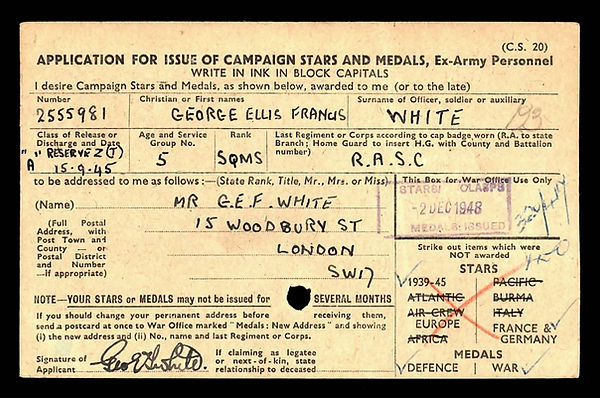 (C.S. 20)
APPLICATION FOR ISSUE OF CAMPAIGN STARS AND MEDALS, Ex-Army Personnel
WRITE IN INK IN BLOCK CAPITALS
I desire Campaign Stars and Medals, as shown below, awarded to me (or to the late)
Number Christian or First names Surname of Officer, soldier or auxiliary
2555981 GEORGE ELLIS FRANCIS WHITE
Class of Release or Discharge and Date
"A" RESERVE Z (T) 15-9-45
Age and Service Group No.
5
Rank
SQMS
Last Regiment or Corps according to cap badge worn (R.A. to state
Branch; Home Guard to insert H.G. with County and Battalion
number)
R.A.S.C
to be addressed to me as follows:—(State Rank, Title, Mr., Mrs. or Miss)
This Box for War Office Use Only
STARS/ CLASPS
-2 DEC 1948
MEDALS ISSUED
(Name) MR G.E.F. WHITE
(Full Postal
Address, with
Post Town and
County — or
Postal District
and Number
—if appropriate)
15 WOODBURY ST
LONDON
SW17
NOTE—YOUR STARS or MEDALS may not be issued for SEVERAL MONTHS
If you should change your permanent address before receiving them,
send a postcard at once to War Office marked "Medals: New Address" and showing
(i) the new address and (ii) No., name and last Regiment or Corps.
Signature of
Applicant
If claiming as legatee
or next-of-kin, state
relationship to deceased
Strike out items which were
NOT awarded
STARS
1939-45 PACIFIC
ATLANTIC BURMA
AIR CREW ITALY
EUROPE FRANCE &
AFRICA GERMANY
MEDALS
DEFENCE WAR